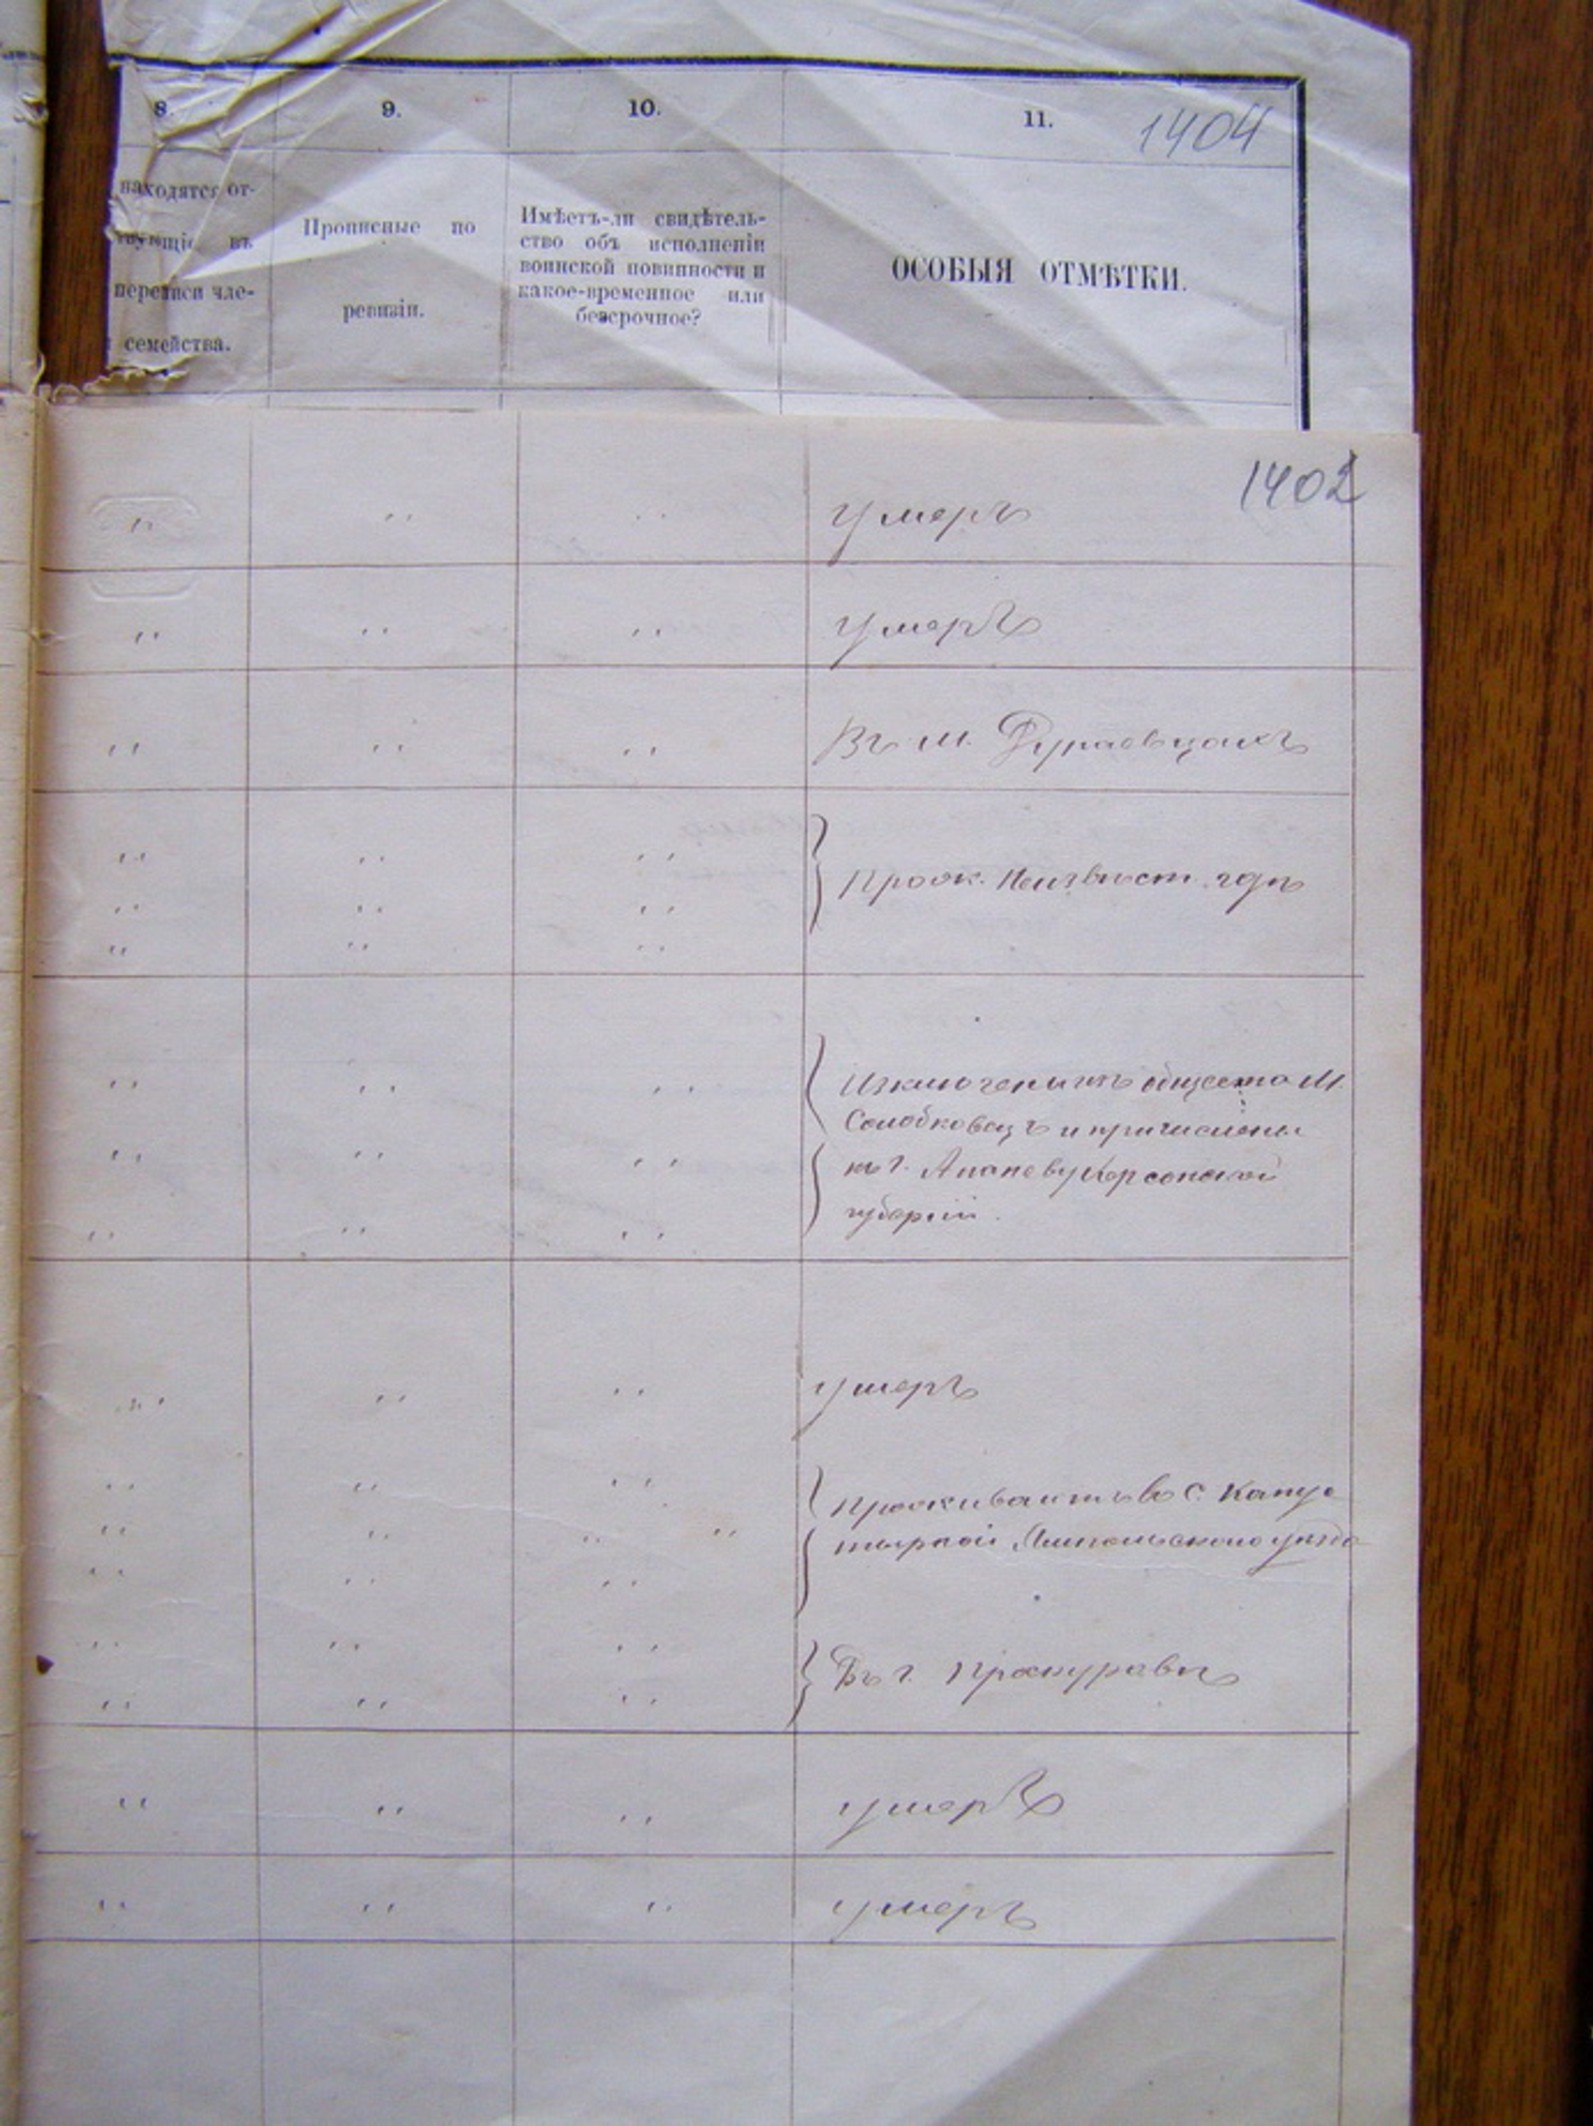 8. 9. 10. 11. 1404
находятся от-
вующіе въ
переписи чле-
семейства.
Прописные по
ревизіи.
Имѣетъ-ли свидѣтель-
ство объ исполненіи
воинской повинности и
какое-временное или
безсрочное?
ОСОБЫЯ ОТМѢТКИ.
1402
" " " умеръ
" " " умеръ
" " " Въ м. Фураевцахъ
" " "
" " " Прож. Неизвѣст. гдѣ
" " "
" " " Изключены изъ общества М.
Солобковецъ и причислены
" " " къ г. Ананьеву Херсонской
" " " губерніи.
" " " умеръ
" " " Проживаютъ въ С. Капус
" " " " тырной Ямпольскаго уѣзда
" " "
" " " Въ г. Проскуровѣ
" " "
" " " умеръ
" " " умеръ